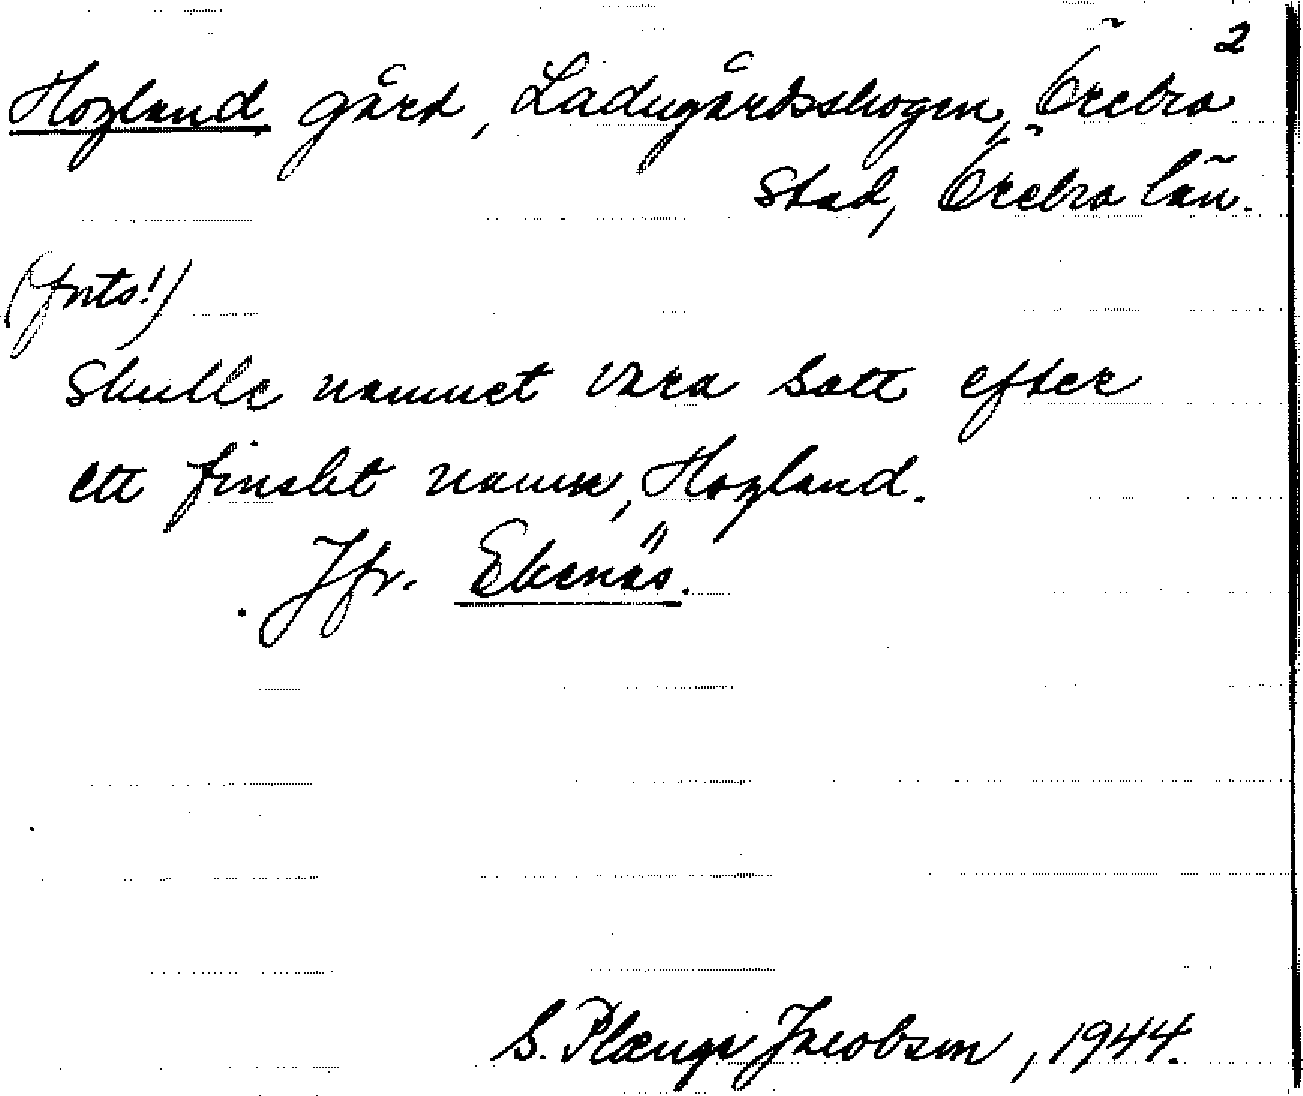 2
Hogland gård, Ladugårdsskogen, Örebro
stad, Örebro län.
(forts!)
Skulle namnet vara satt efter
ett finskt namn, Hogland.
Jfr. Ekenäs.
S. Plænge Jacobson, 1944.